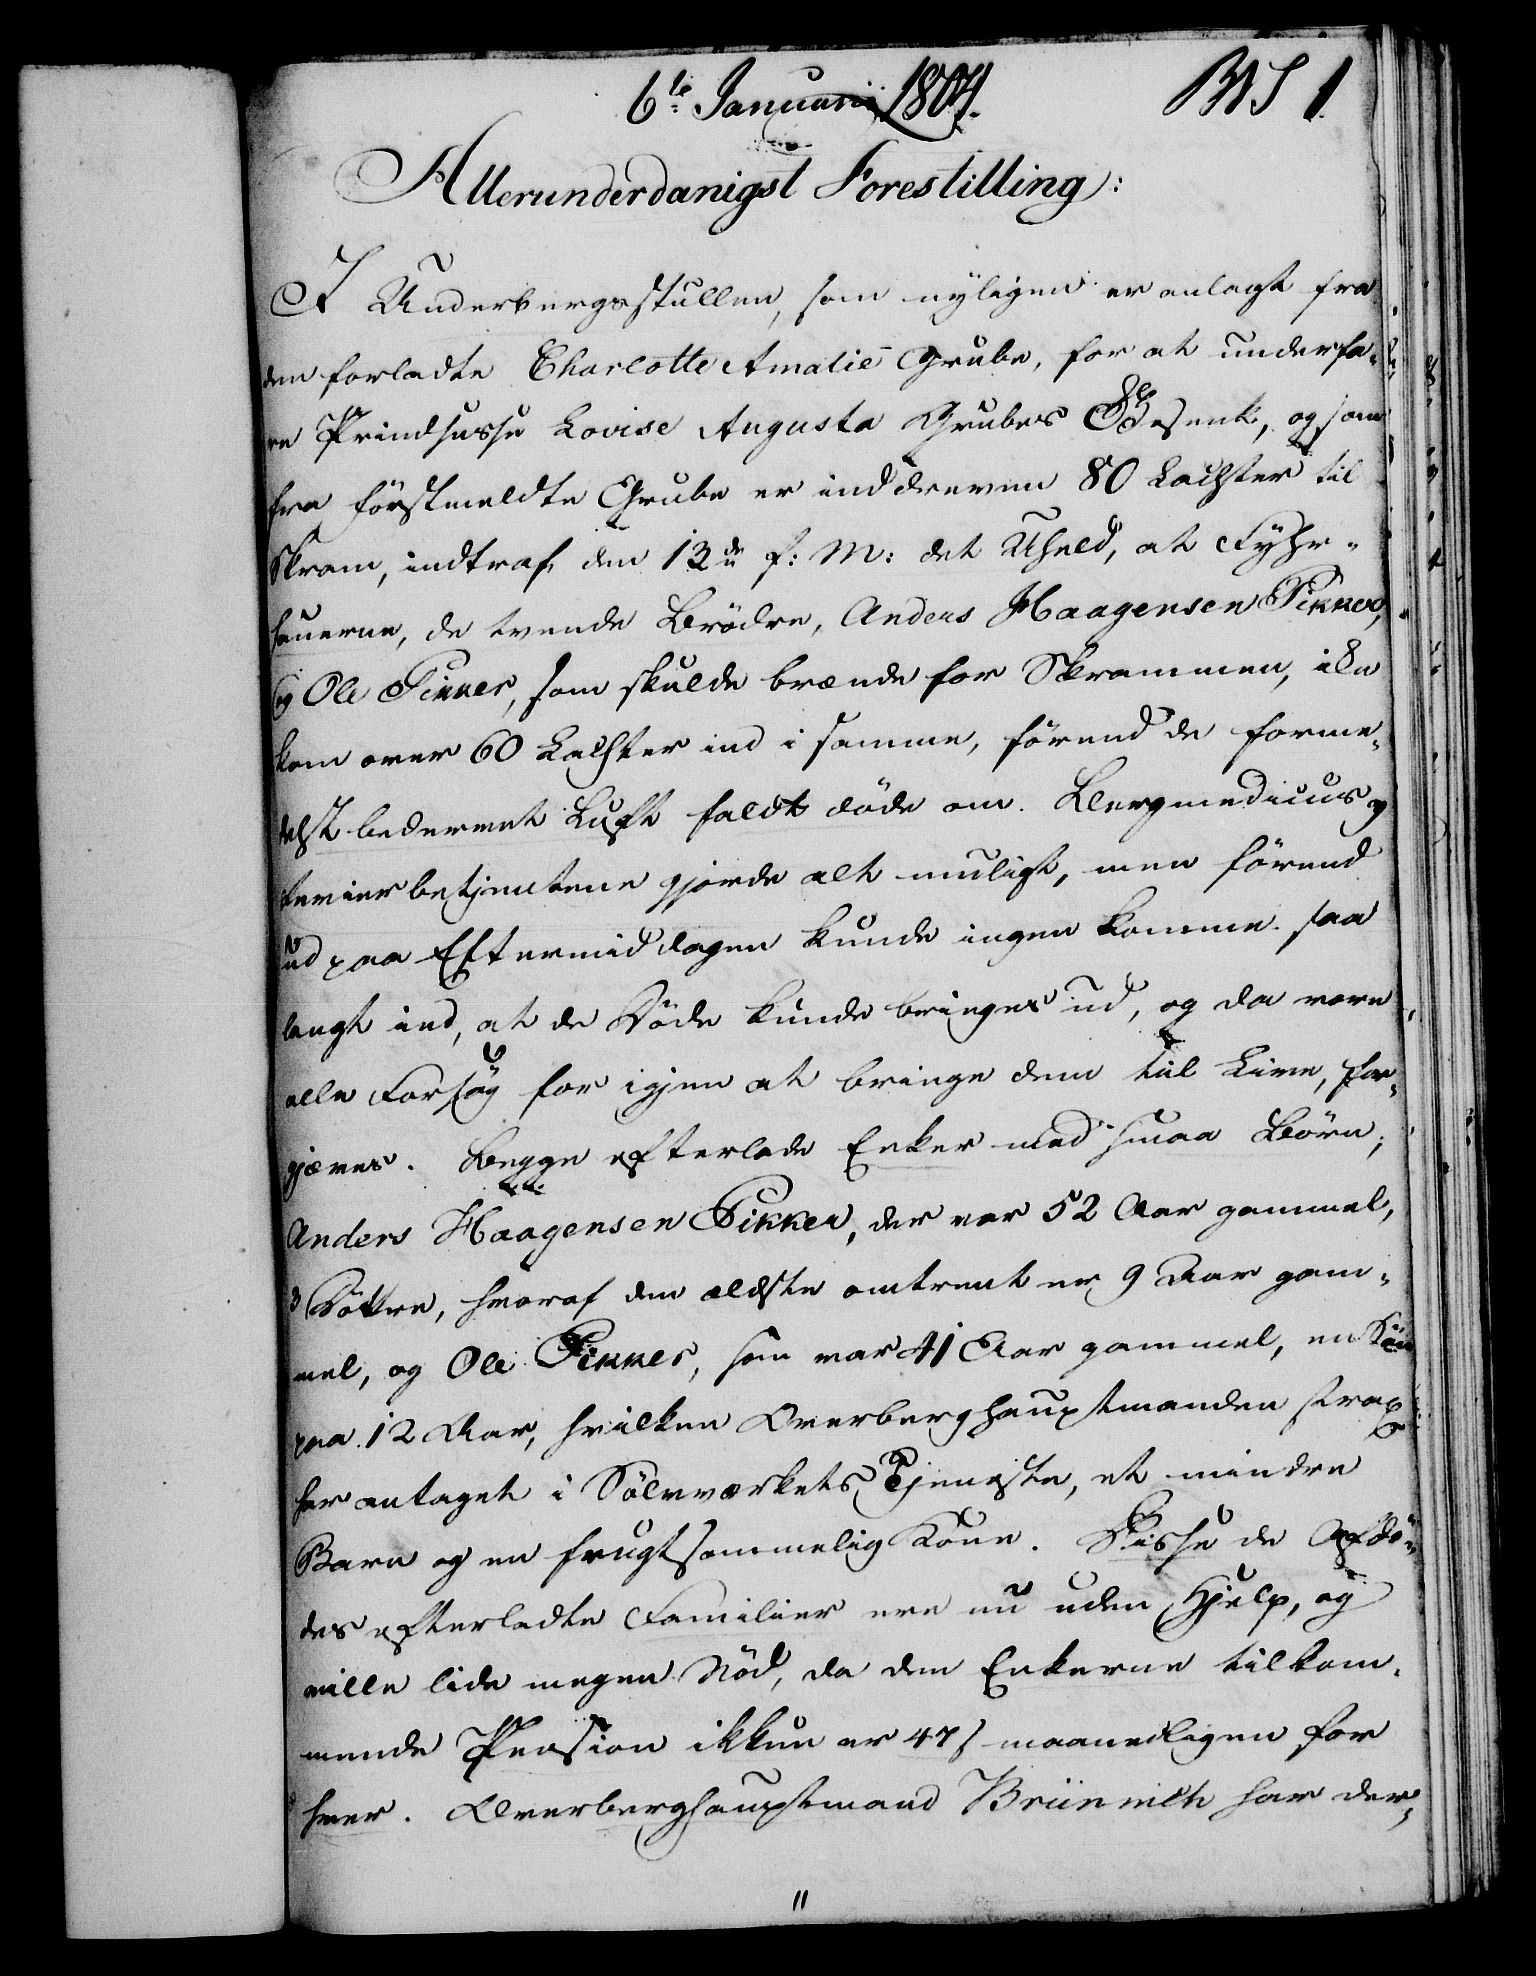 6te Januarii 1804.
BWS 1.
Allerunderdanigst Forestilling:
I Underbergsstullen, som nyligen er anlagt fra
den forladte Charlotte Amalie Grube, for at underfa-
re Prindsesse Lovise Augusta Grubes Gesenk, og som
fra förstmeldte Grube er inddreven 80 Lachter til
Skram, indtraf den 13de f: M: det Uheld, at Fyhr-
hauerne, de tvende Brödre, Anders Haagensen Pikker,
og Ole Pikker, som skulde brænde for Skrammen, ikke
kom over 60 Lachter ind i samme, förend de forme-
delst bedervet Luft faldt döde om. Bergmedicus og
Reviersbetjentene gjorde alt muligt, men förend
ud paa Eftermiddagen kunde ingen komme saa
langt ind, at de Döde kunde bringes ud, og da vare
alle Forsög for igjen at bringe dem til Live, for-
gjæves. Begge efterlode Enker med smaa Börn;
Anders Haagensen Pikker, der var 52 Aar gammel,
3 Döttre, hvoraf den ældste omtrent er 9 Aar gam-
mel, og Ole Pikker, som var 41 Aar gammel, en Sön
paa 12 Aar, hvilken Overberghauptmanden strax
har antaget i Sölvværkets Tjeneste, et mindre
Barn og en frugtsommelig Kone. Disse de Afdö-
des efterladte Familier ere nu uden Hjelp, og
ville lide megen Nöd, da den Enkerne tilkom-
mende Pension ikkun er 47 s maanedligen for
hver. Overberghauptmand Brünnich har der-
11